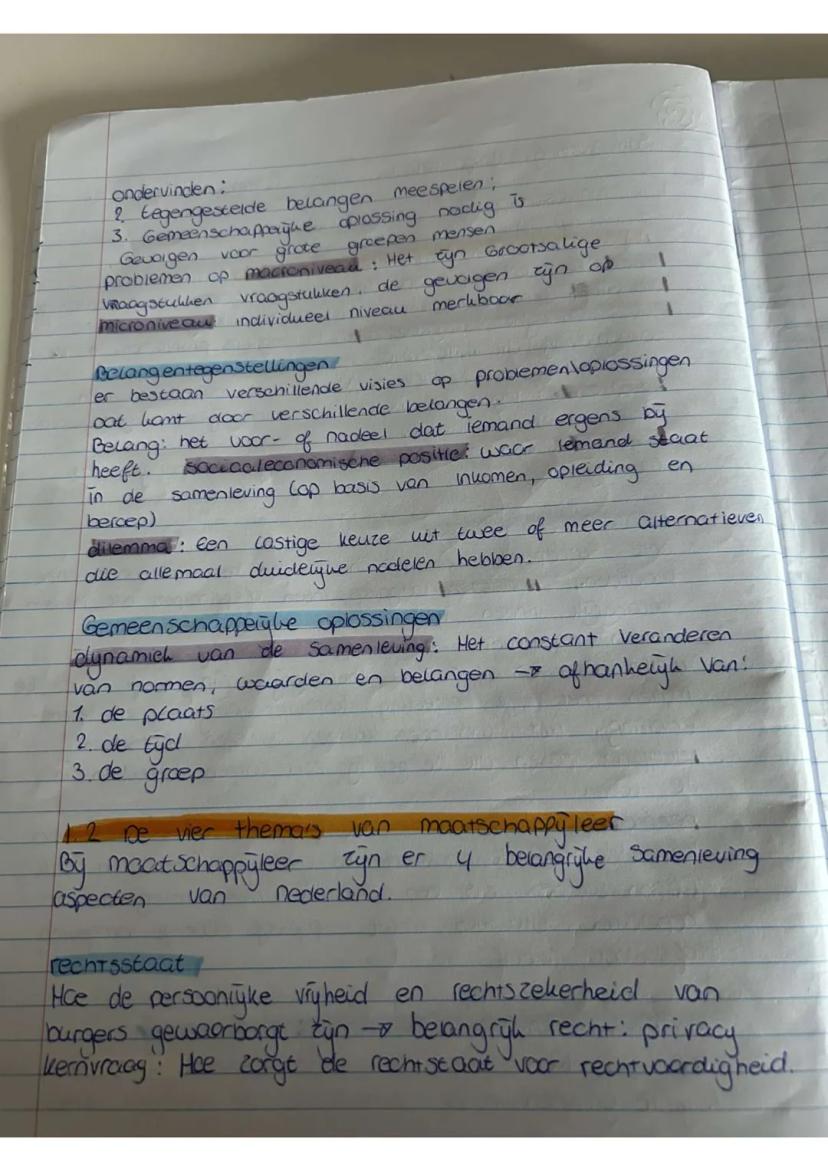 ondervinden;
2. tegengestelde belangen meespelen;
3. Gemeenschappelijke oplossing nodig is
Gevolgen voor grote groepen mensen
problemen op macroniveau: Het zijn Grootsalige
vraagstukken vraagstukken. de gevolgen zijn op
microniveau individueel niveau merkbaar
Belangentegenstellingen
er bestaan verschillende visies op problemen\oplossingen
dat komt door verschillende belangen.
Belang: het voor- of nadeel dat iemand ergens bij
heeft. sociaaleconomische positie: waar iemand staat
in de samenleving (op basis van inkomen, opleiding en
beroep)
dilemma: Een lastige keuze uit twee of meer alternatieven
die allemaal duidelijke nadelen hebben.
Gemeenschappelijke oplossingen
dynamiek van de samenleving: Het constant veranderen
van normen, waarden en belangen → afhankelijk van:
1. de plaats
2. de tijd
3. de groep
1.2 De vier thema's van maatschappijleer
Bij maatschappijleer zijn er 4 belangrijke samenleving
aspecten van nederland.
rechtsstaat
Hoe de persoonlijke vrijheid en rechtszekerheid van
burgers gewaarborgt zijn → belangrijk recht: privacy
kernvraag: Hoe zorgt de rechtstaat voor rechtvaardigheid.